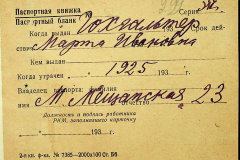 Паспортная книжка №
Паспортный бланк Серия
Гохгальтер
Когда выдан Срок дей-
Марта Ивановна
Кем выдан
Когда утрачен 1925 193 г.
Владелец паспорта: фамилия
М. Мещанская 23
отчество
Должность и подпись работника
РКМ, заполнившего карточку
193 г.
2-я кн. ф-ка № 7385—2000×100 Ст. Бб